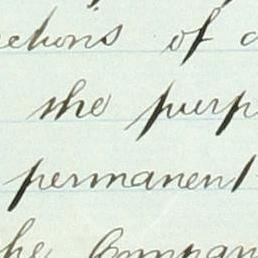 ections of a
the purp
permanent
he Compan